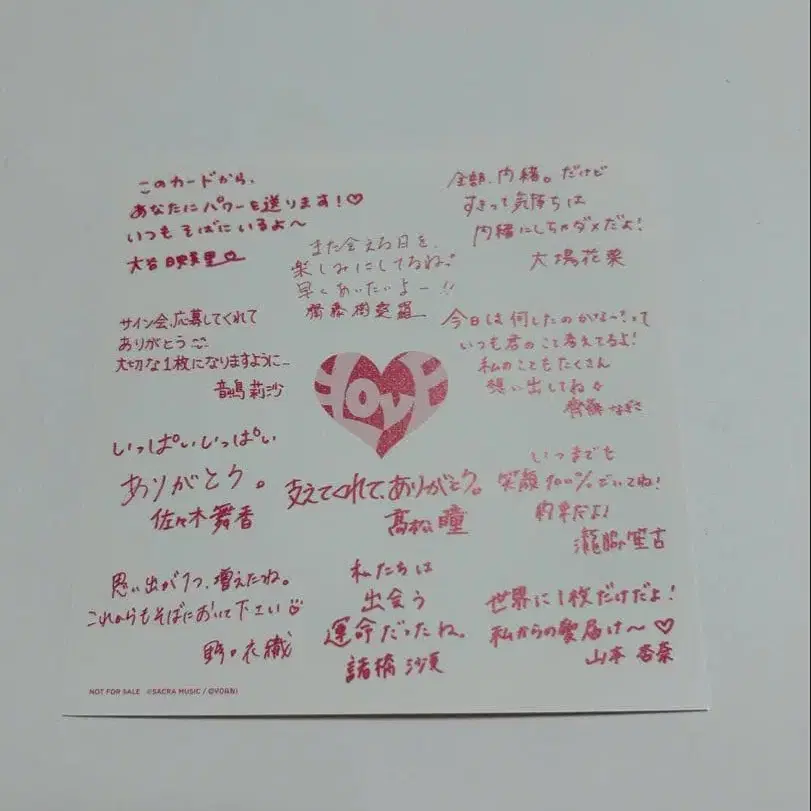 このカードから、
あなたにパワーを送ります!♡
いつもそばにいるよ〜
大谷映美里
全部、内緒。だけど
すきって気持ちは
内緒にしちゃダメだよ!
大場花菜
また会える日を、
楽しみにしてるね。
早くあいたいよー!!
齋藤樹愛羅
サイン会、応募してくれて
ありがとう
大切な1枚になりますように
音嶋莉沙
今日は何したのかなー?って
いつも君のこと考えてるよ!
私のこともたくさん
想い出してね
齊藤なぎさ
LOVE
いっぱいいっぱい
ありがとう。
佐々木舞香
支えてくれて、ありがとう。
髙松瞳
いつまでも
笑顔100%でいてね!
約束だよ!
瀧脇笙古
思い出が1つ、増えたね。
これからもそばにおいて下さい
野口衣織
私たちは
出会う
運命だったね。
諸橋沙夏
世界に1枚だけだよ!
私からの愛届け〜♡
山本杏奈
NOT FOR SALE ©SACRA MUSIC / ©YOANI